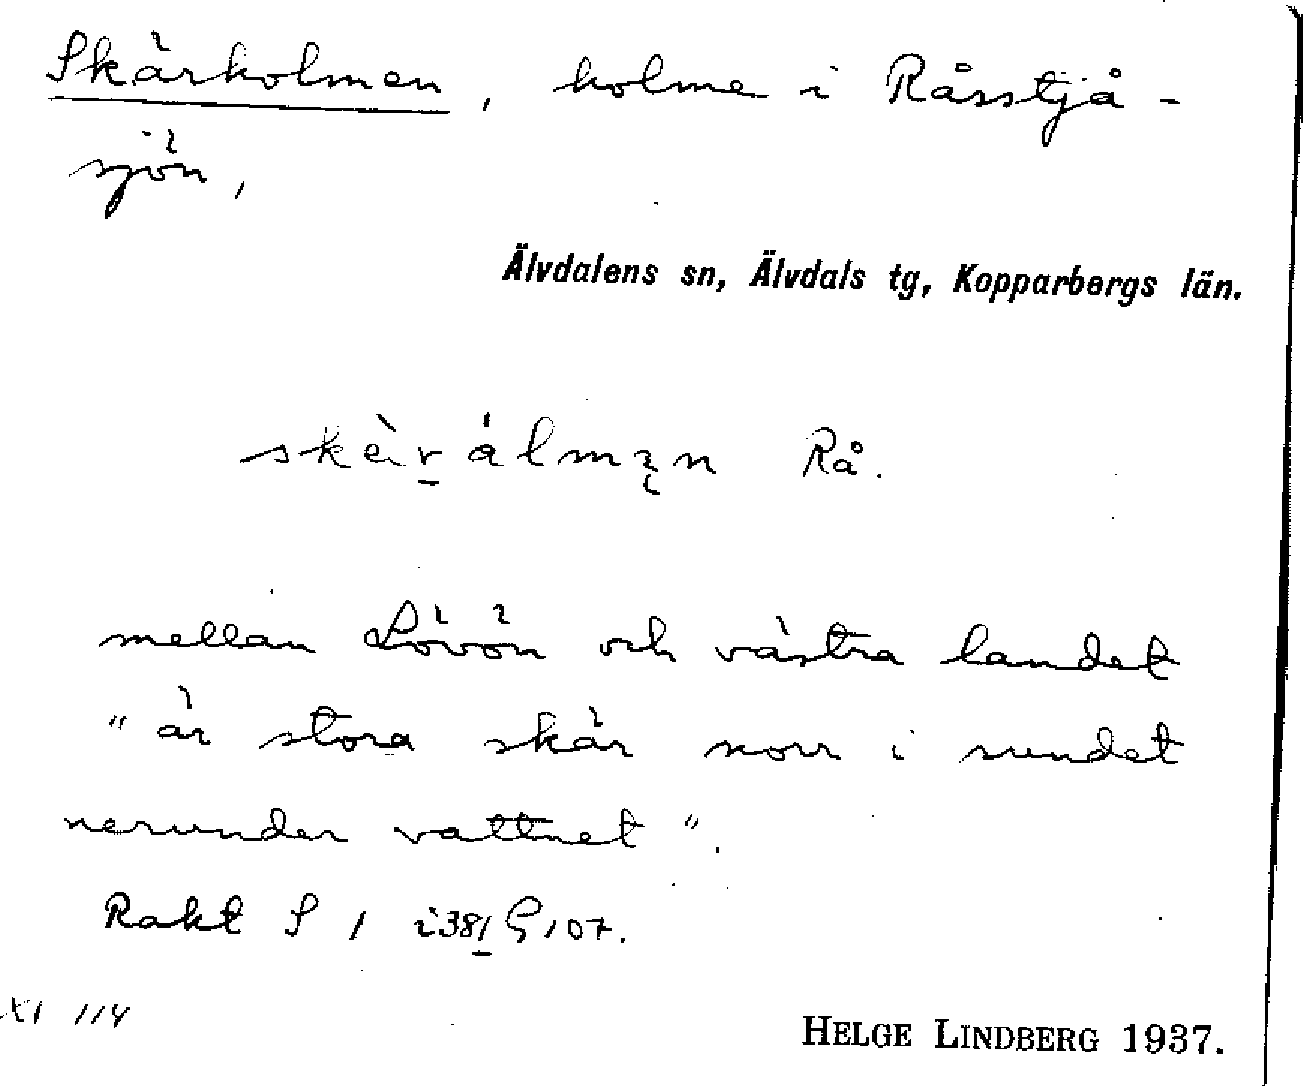 Skärholmen, holme i Råsstjå-
sjön,
Älvdalens sn, Älvdals tg, Kopparbergs län.
Rå.
mellan Lövön och västra landet
"är stora skär norr i sundet
nerunder vattnet".
Rakt S 1 i 381 G 107.
XI 114
HELGE LINDBERG 1937.